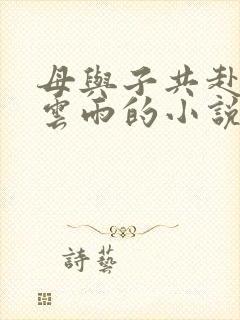 母與子共赴
雲雨的小說
詩藝